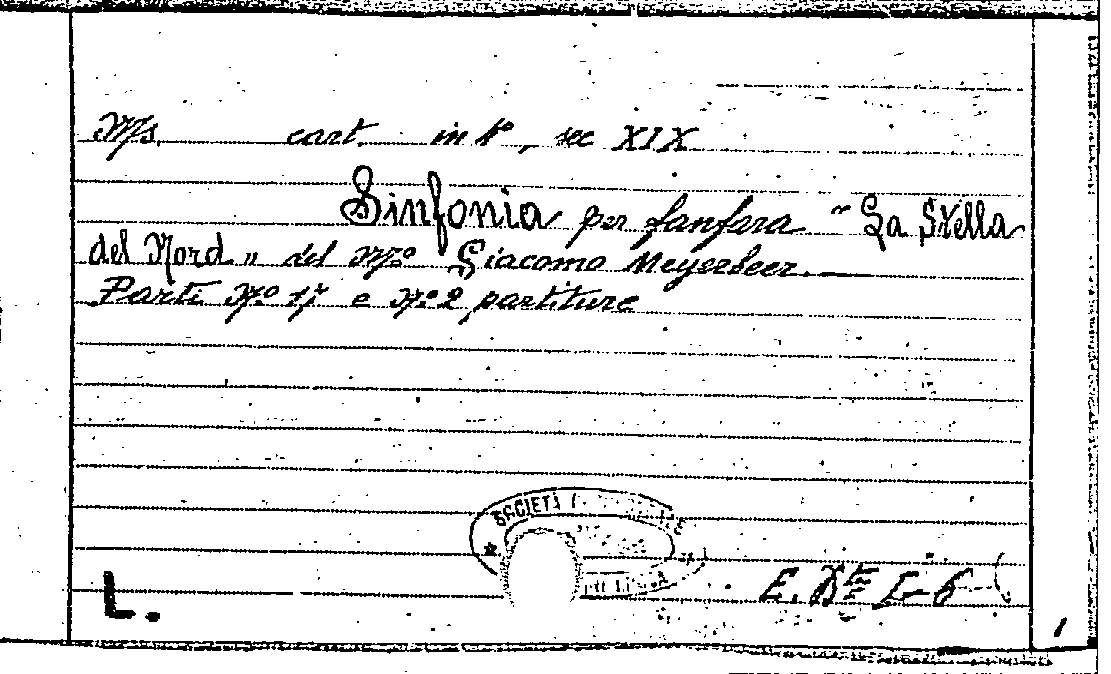 Ms. cart. in 4°, sec XIX
Sinfonia per fanfara "La Stella
del Nord" del M° Giacomo Meyerbeer.
Parti N° 17 e N° 2 partiture
SOCIETÀ
L.